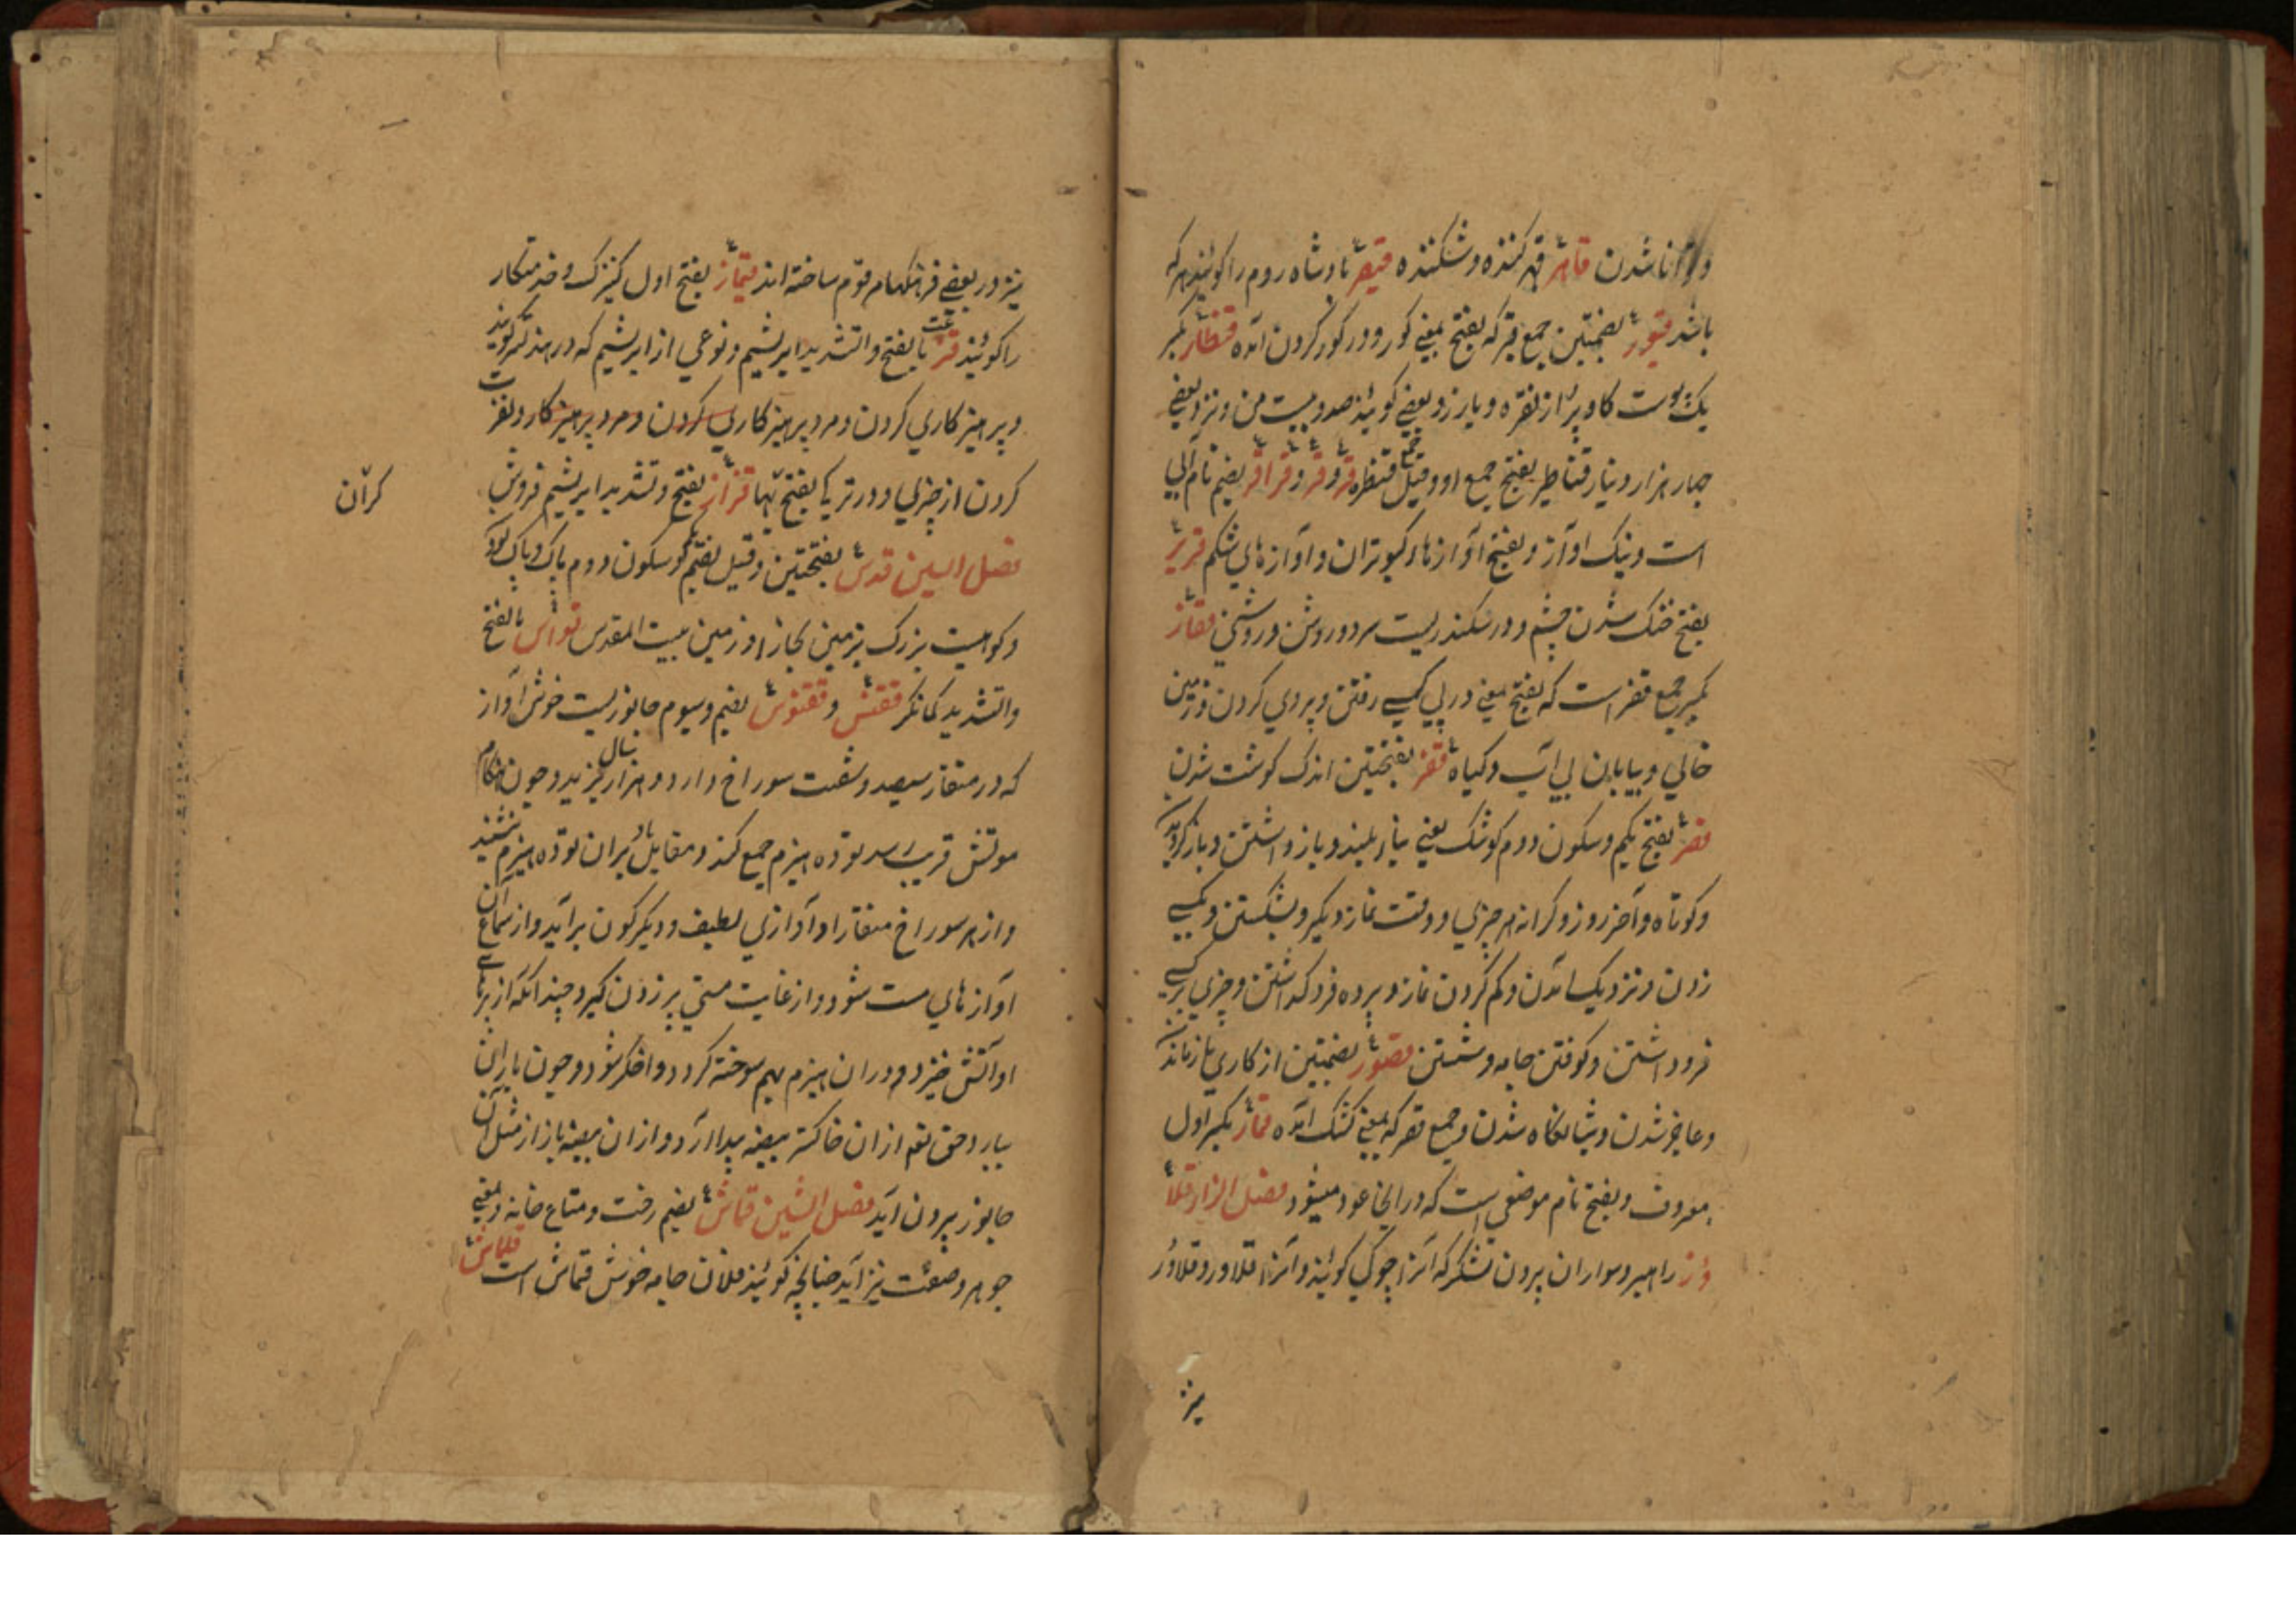 و توانا شدن قاهر قهر کننده و شکننده قیصر پادشاه روم را گویند هر که
باشد قبور بضمتین جمع قبر که بفتح بمعنی گور و در گور کردن آمده قنطار بکسر
یک پوست گاو پر از نقره و یا زر و بعضی گویند صد و بیست من و نزد بعضی
چهار هزار دینار قناطیر بفتح جمع او و قیل جمع قنطره قر و قرقر و قراقر بضم نام آبی
است و نیک آواز و بفتح آوازهای کبوتران و آوازهای شکم قریر
بفتح خنک شدن چشم و در سکندریست سرد و روشن و روشنی قفار
بکسر جمع قفر است که بفتح بمعنی در پی کسی رفتن و پیروی کردن و زمین
خالی و بیابان بی آب و کیاه قفر بفتحتین اندک کوشت شدن
قصر بفتح یکم و سکون دوم کوشک یعنی بنای بلند و باز داشتن و باز کردیدن
و کوتاه و آخر روز و کرانه هر چیزی و وقت نماز دیگر و بشکستن و بکسی
زدن و نزدیک آمدن و کم کردن نماز و پرده فرو گذاشتن و چیزی بر کسی
فرود اشتن و کوفتن جامه و شستن قصور بضمتین از کاری باز ماندن
و عاجز شدن و شبانگاه شدن و جمع قصر که بمعنی کشک آمده قمار بکسر اول
معروف و بفتح نام موضعی است که در انجا عود میشود فصل الزا قلا
وز راهبر و سواران بیرون لشکر که آنرا چوکی گویند و آنرا قلاور و قلاوُر
نیز
نیز در بعضی فرهنگها مرقوم ساخته اند قیماز بفتح اول کنیزک و خدمتکار
را گویند قز بالفتح و التشدید ابریشم و نوعی از ابریشم که در هند تسر گویند
و پرهیزکاری کردن و مرد پرهیزکاری کردن و مرد پرهیزکار و نفرت
کردن از چیزی و در ترکی بفتح تنها قزاز بفتح و تشدید ابریشم فروش
فصل السین قدس بفتحتین و قیل بضم یکم و سکون دوم پاک و پاک بود
و کوهیست بزرگ بزمین حجاز و زمین بیت المقدس قواس بالفتح
و التشدید کمانگر ققنس و ققنوس بضم و سیوم جانوریست خوش آواز
که در منقار سیصد و شصت سوراخ دارد و هزار سال بزید و چون هنگام
موتش قریب رسد توده هیزم جمع کند و مقابل باد بران توده هیزم بنشیند
و از هر سوراخ منقار او آوازی لطیف و دیگرگون برآید و از سماع آن
آوازهای مست شود و از غایت مستی پر زدن گیرد چندانکه از پرهای
او آتش خیزد و دران هیزم بهم سوخته گردد و اخگر شود و چون باران
ببارد حق تعم ازان خاکستر بیضه پیدا آرد و ازان بیضه باز از مثل آن
جانور بیرون آید فصل الشین قماش بضم رخت و متاع خانه و بمعنی
جوهر و صفت نیز آید چنانچه گویند فلان جامه خوش قماش است قلماش
کرآن